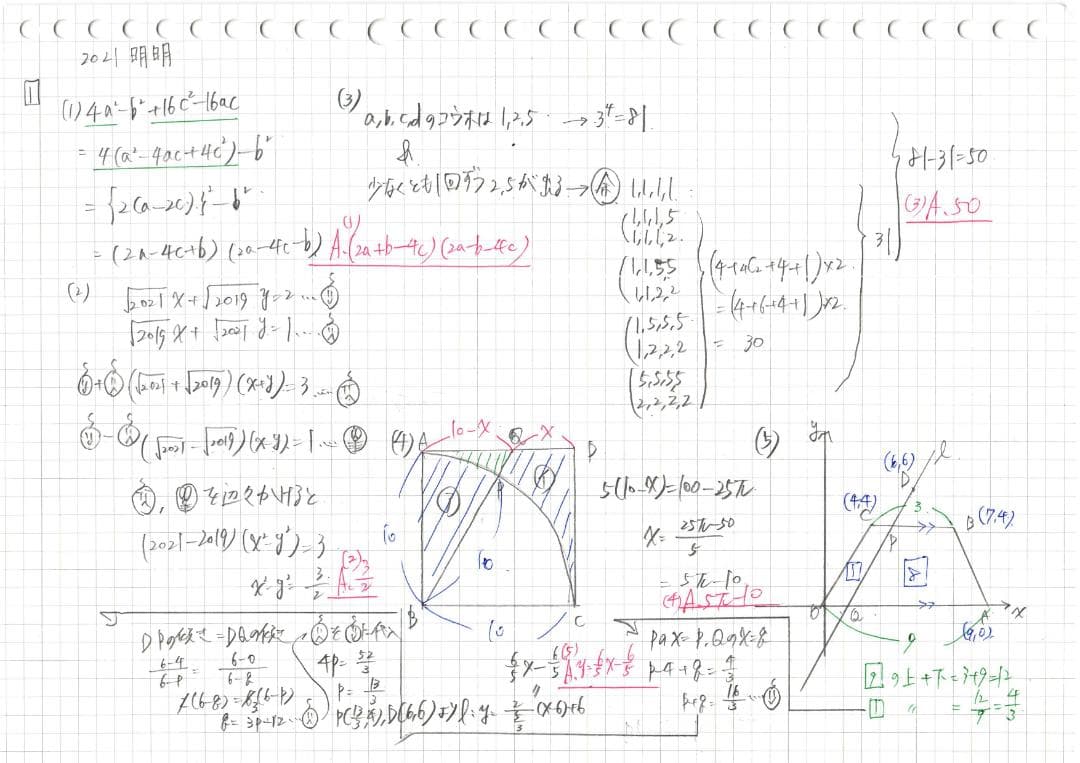 2021 明明
1
(1) 4a²-b²+16c²-16ac
= 4(a²-4ac+4c²)-b²
= {2(a-2c)}²-b²
= (2a-4c+b)(2a-4c-b)
(1) A.(2a+b-4c)(2a-b-4c)
(2)
√2021 x+√2019 y=2 …
√2019 x+√2021 y=1 …
(√2021+√2019)(x+y)=3 …
(√2021-√2019)(x-y)=1 …
を辺々かけると
(2021-2019)(x²-y²)=3
x²-y²=3/2
(2) A. 3/2
(3)
a,b,c,dのコウホは1,2,5 → 3⁴=81
&
少なくとも1回ずつ2,5が出る→余
1,1,1,1
1,1,1,5
1,1,1,2
1,1,5,5
1,1,2,2
1,5,5,5
1,2,2,2
5,5,5,5
2,2,2,2
(4+4C2+4+1)×2
=(4+6+4+1)×2
= 30
31
81-31=50
(3)A.50
(4)
A 10-x Q x D
P
10
10
10
B C
5(10-x)=100-25π
x=25π-50/5
=5π-10
(4)A.5π-10
(5)
y
(6,6) l
D
(4,4) 3
C B (7,4)
P
1 8
O Q A x
9 (9,0)
9 上+下=3+9=12
1 〃 =12/9=4/3
PのX=p, QのX=q
p-4+q=4/3
p+q=16/3 …
DPの傾き=DQの傾き
6-4/6-p=6-0/6-q
q=3p-12 …
を に代入
4p=52/3
p=13/3
P(13/3,4), D(6,6)よりl:y=2/(5/3)(x-6)+6
〃
6/5x-6/5
(5) A.y=6/5x-6/5